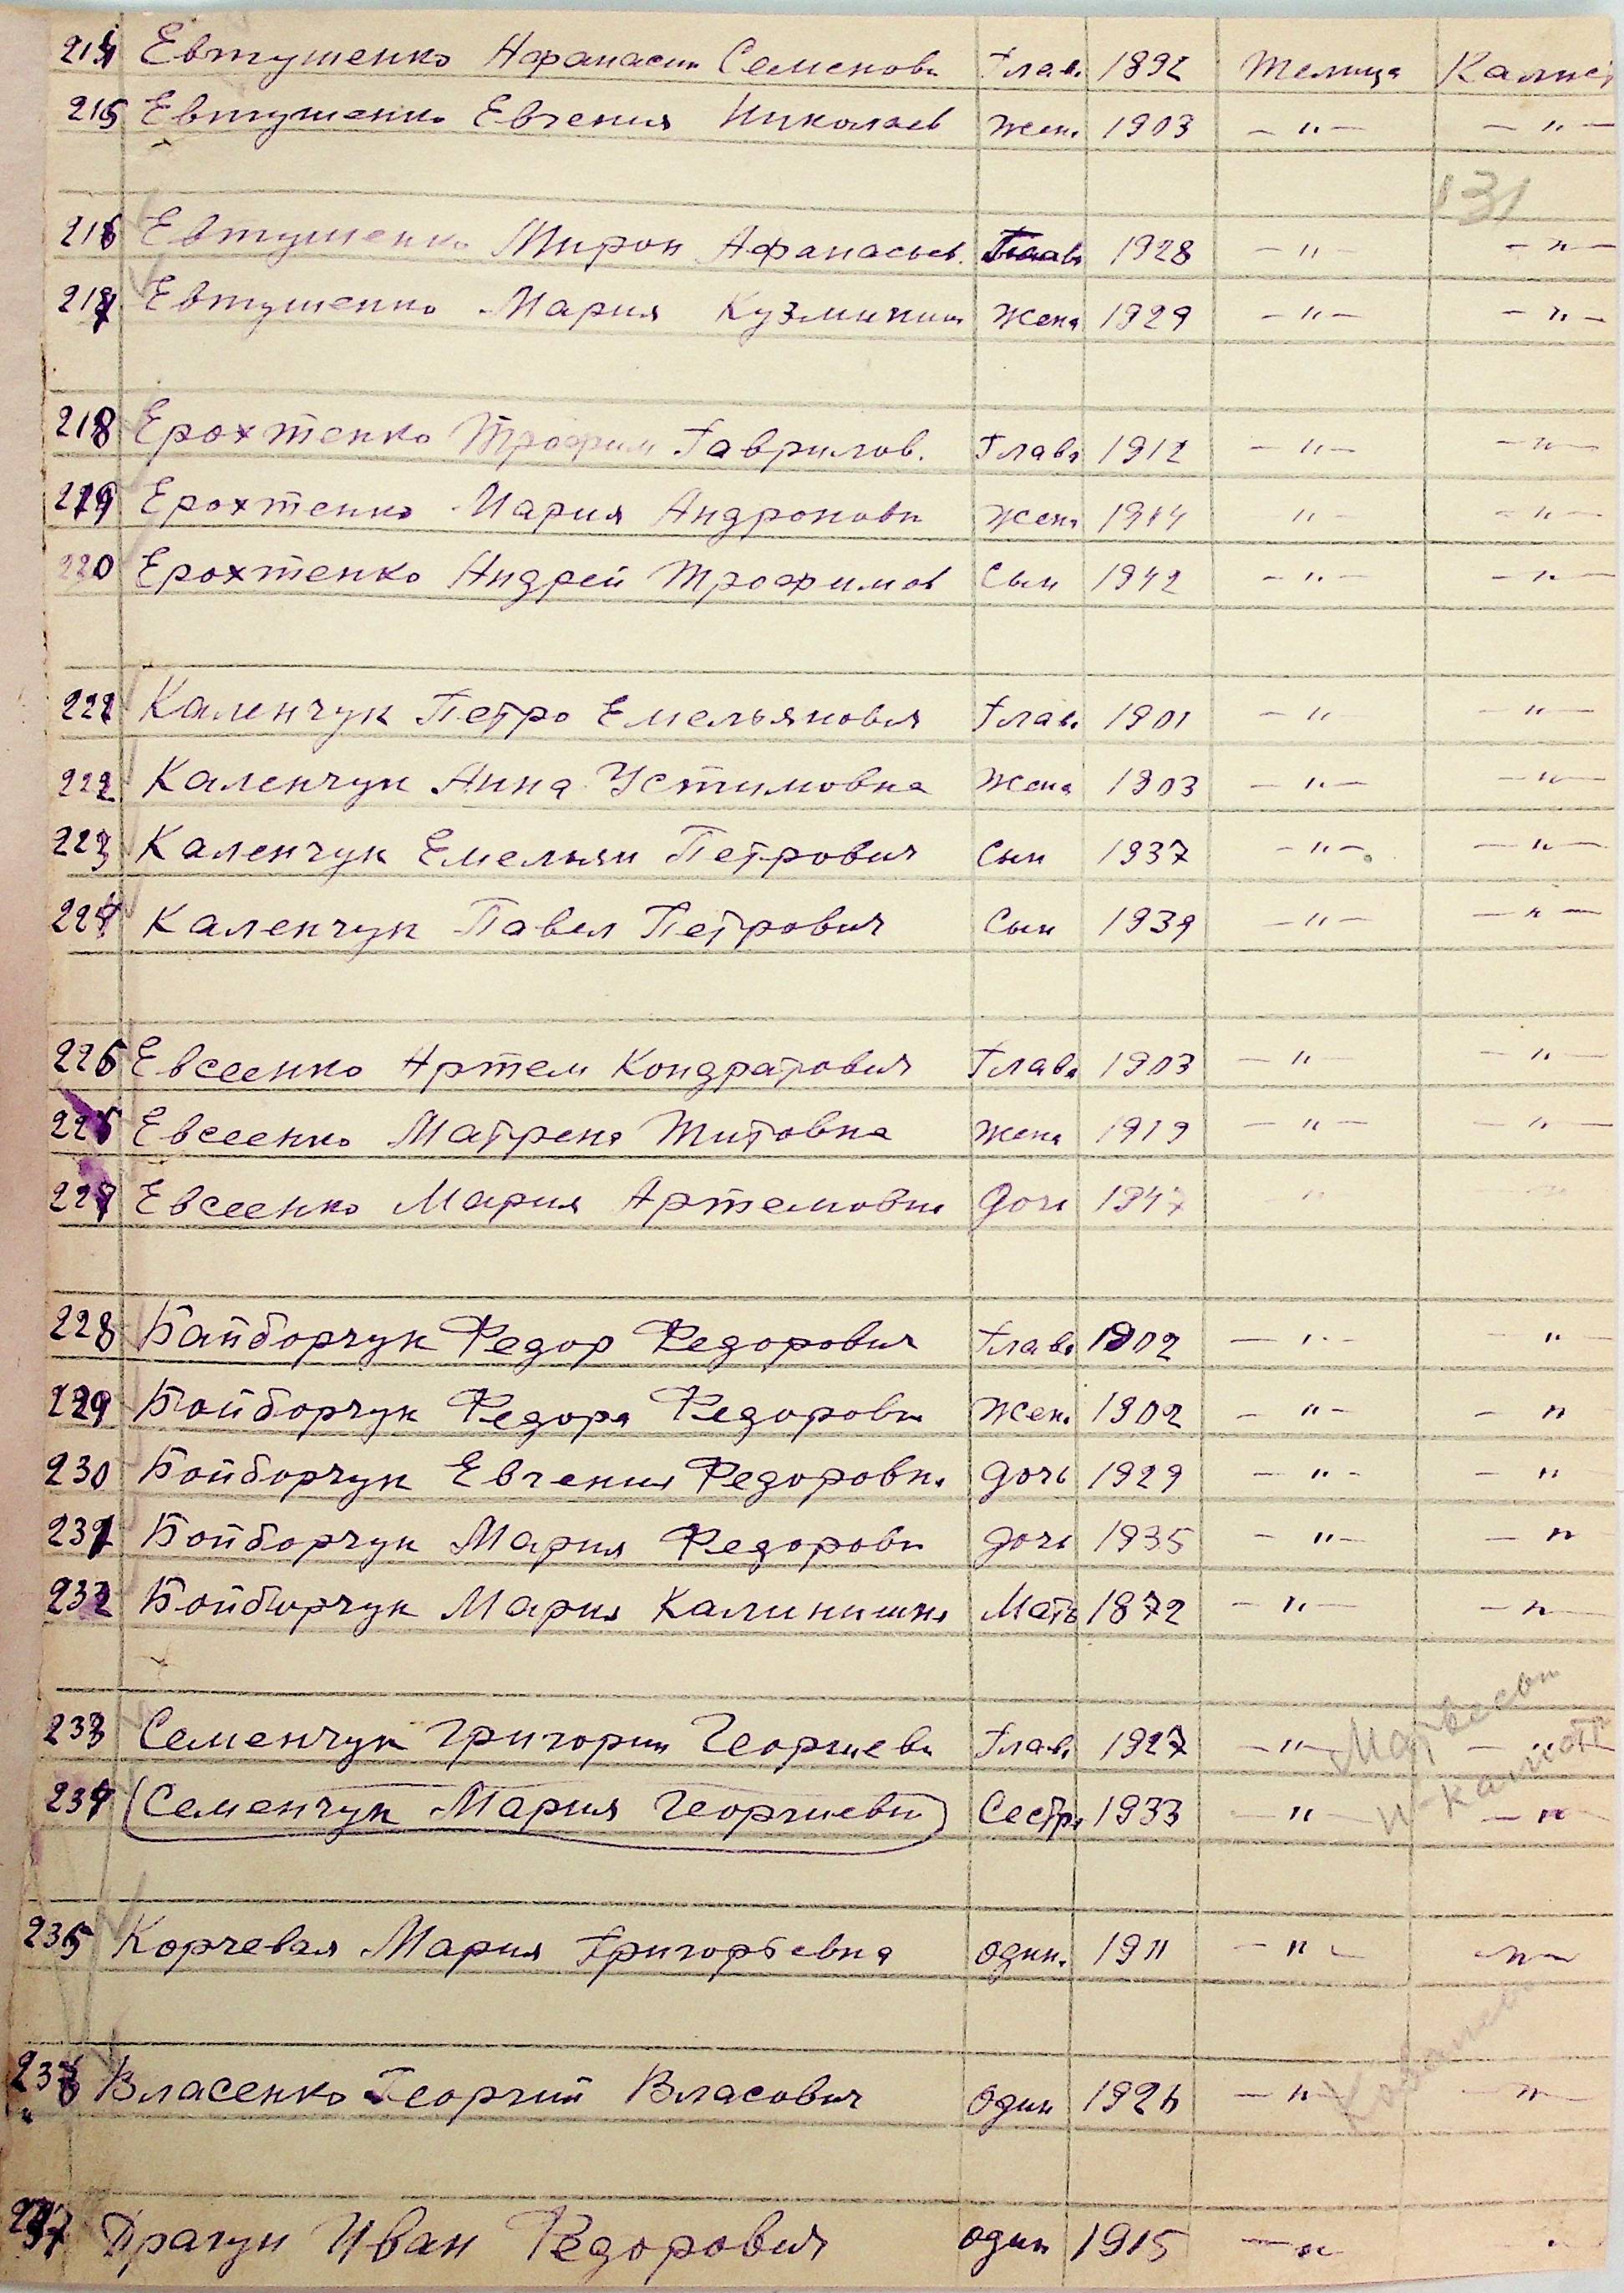 214 Евтушенко Афанасии Семенови Глав. 1892 Телица Калист
215 Евтушенко Евгения Николаев жен. 1903 -"- -"-
131
216 Евтушенко Мирон Афанасьев. Глава 1928 -" -"-
217 Евтушенко Мария Кузминич жена 1929 -"- -"-
218 Ерохтенко Трофим Гаврилов. Глава 1912 -"- -"-
219 Ерохтенко Мария Андронови жена 1914 "- -"-
220 Ерохтенко Андрей Трофимов Сын 1942 -"- -"-
221 Каленчук Петро Емельянович Глав. 1901 -" -"-
222 Каленчук Анна Устимовна жена 1903 -"- -"-
223 Каленчук Емельян Петрович Сын 1937 -"- -"-
224 Каленчук Павел Петрович Сын 1939 -"- -"-
225 Евсеенко Артем Кондратович Глава 1903 -" -"-
226 Евсеенко Матрена Титовна жена 1919 -"- -"-
227 Евсеенко Мария Артемовна дочь 1947 " "
228 Байборчук Федор Федорович Глава 1902 -"- -"
229 Бойборчук Федора Федоровн жен. 1902 -"- -"
230 Бойборчук Евгения Федоровна дочь 1929 -"- -"
231 Бойборчук Мария Федоровн дочь 1935 -"- -"
232 Бойборчук Мария Калинишна Мать 1872 -"- -"-
233 Семенчук Григории Георгиеви Глав. 1927 -"- -"-
234 (Семенчук Мария Георгиевн) Сестра 1933 -" -"
235 Корчевая Мария Григорьевна один. 1911 -"- -"-
236 Власенко Георгий Власович один 1926 -"- -"-
237 Драгун Иван Федорович один 1915 -"-